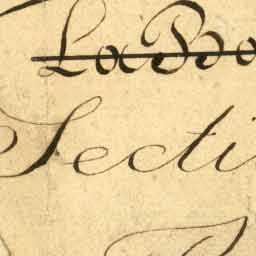 LaBo
Secti